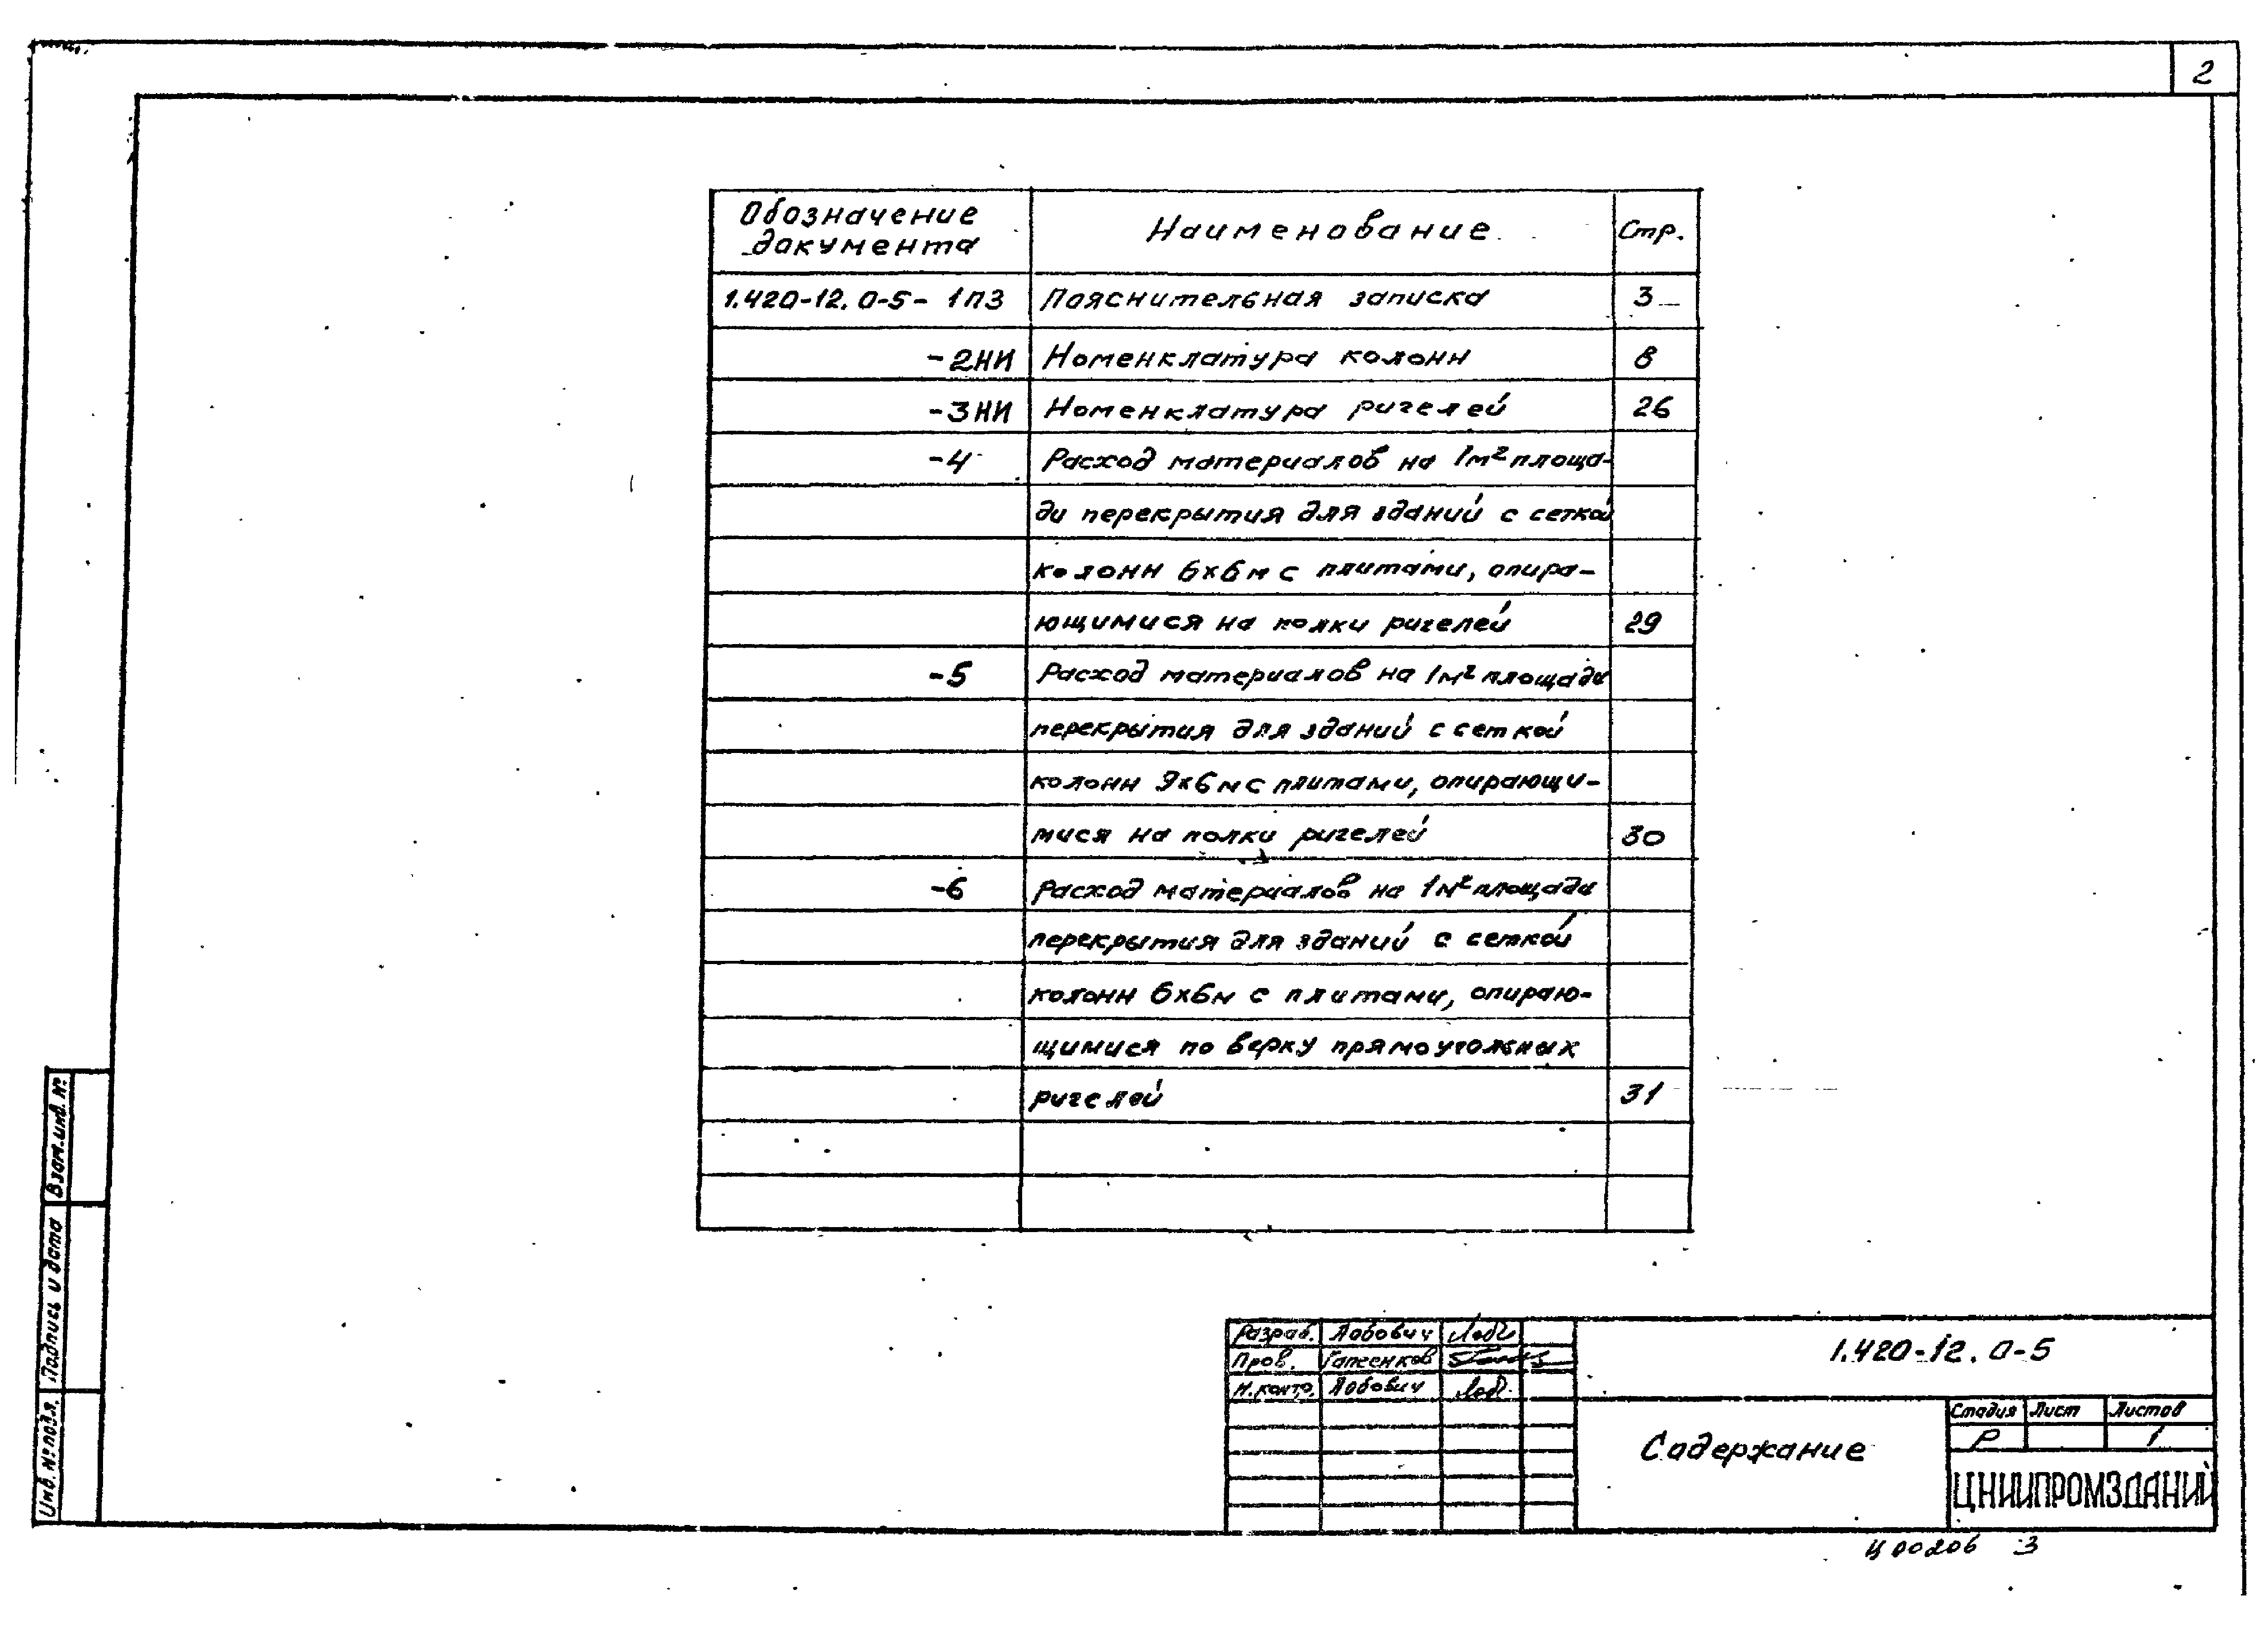 2
Обозначение документа Наименование Стр.
1.420-12.0-5- 1ПЗ Пояснительная записка 3
-2НИ Номенклатура колонн 8
-3НИ Номенклатура ригелей 26
-4 Расход материалов на 1м² площа-
ди перекрытия для зданий с сеткой
колонн 6х6м с плитами, опира-
ющимися на полки ригелей 29
-5 Расход материалов на 1м² площади
перекрытия для зданий с сеткой
колонн 9х6м с плитами, опирающи-
мися на полки ригелей 30
-6 Расход материалов на 1м² площади
перекрытия для зданий с сеткой
колонн 6х6м с плитами, опираю-
щимися по верху прямоугольных
ригелей 31
Взам.инв.№
Подпись и дата
Инв.№подл.
Разраб. Лобович
Пров. Гапеенков
Н.контр. Лобович
1.420-12.0-5
Содержание
Стадия Лист Листов
Р 1
ЦНИИПРОМЗДАНИЙ
Ц00206 3